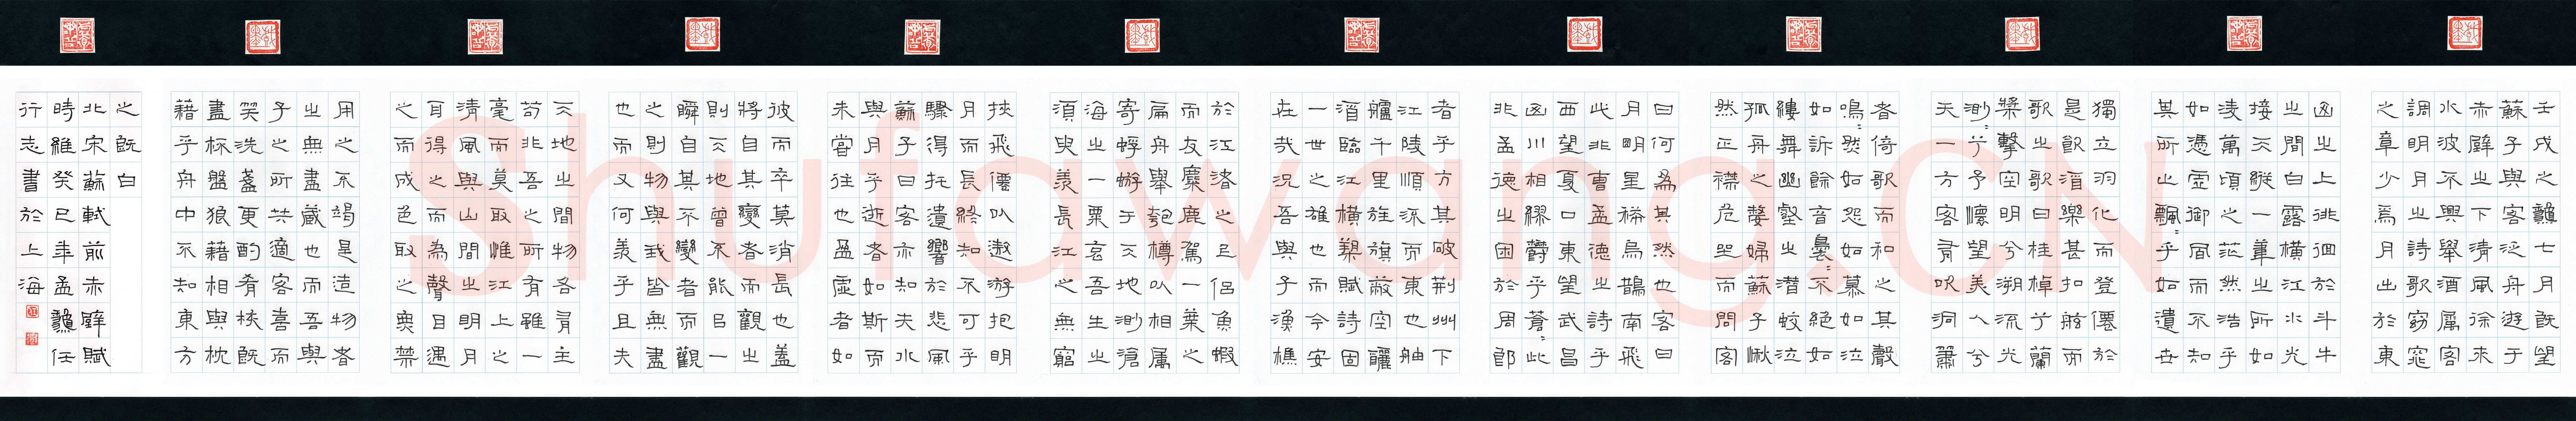 壬戌之龝七月既望
蘇子與客泛舟遊于
赤壁之下清風徐来
水波不興舉酒属客
調明月之詩歌窈窕
之章少焉月出於東
山之上徘徊於斗牛
之間白露橫江水光
接天縱一葦之所如
淩萬頃之茫然浩乎
如憑虛御風而不知
其所止飄〻乎如遺世
獨立羽化而登僊於
是飲酒樂甚扣舷而
歌之歌曰桂棹兮蘭
槳擊空明兮溯流光
渺〻兮予懷望美人兮
天一方客有吹洞簫
者倚歌而和之其聲
嗚〻然如怨如慕如泣
如訴餘音嫋〻不絕如
縷舞幽壑之潛蛟泣
孤舟之嫠婦蘇子愀
然正襟危坐而問客
曰何為其然也客曰
月明星稀烏鵲南飛
此非曹孟德之詩乎
西望夏口東望武昌
山川相繆鬱乎蒼〻此
非孟德之困於周郎
者乎方其破荊州下
江陵順流而東也舳
艫千里旌旗蔽空釃
酒臨江橫槊賦詩固
一世之雄也而今安
在哉況吾與子漁樵
於江渚之上侶魚蝦
而友麋鹿駕一葉之
扁舟舉匏樽以相属
寄蜉蝣于天地渺滄
海之一粟哀吾生之
須臾羨長江之無窮
挾飛僊以遨游抱明
月而長終知不可乎
驟得托遺響於悲風
蘇子曰客亦知夫水
與月乎逝者如斯而
未嘗往也盈虛者如
彼而卒莫消長也蓋
將自其變者而觀之
則天地曾不能以一
瞬自其不變者而觀
之則物與我皆無盡
也而又何羨乎且夫
天地之間物各有主
苟非吾之所有雖一
毫而莫取惟江上之
清風與山間之明月
耳得之而為聲目遇
之而成色取之無禁
用之不竭是造物者
之無盡藏也而吾與
子之所共適客喜而
笑洗盞更酌肴核既
盡杯盤狼藉相與枕
藉乎舟中不知東方
之既白
北宋蘇軾前赤壁賦
時維癸巳年孟龝任
行志書於上海
Shufawang.CN